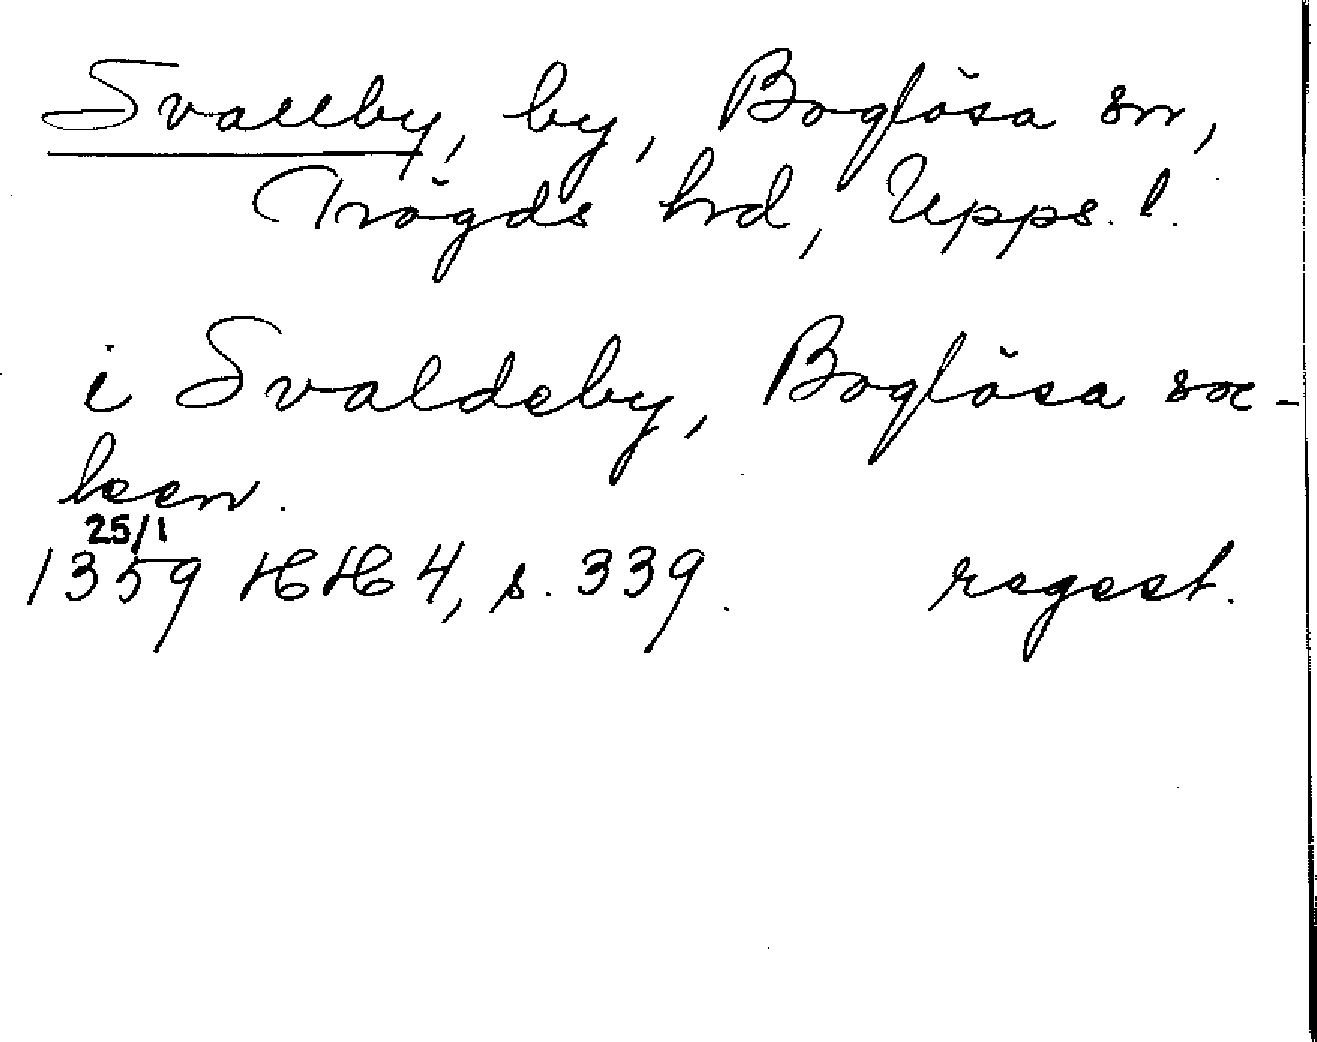 Svallby, by, Boglösa sn,
Trögds hrd, Upps. l.
i Svaldeby, Boglösa soc-
ken.
25/1
1359 HH 4, s. 339. regest.